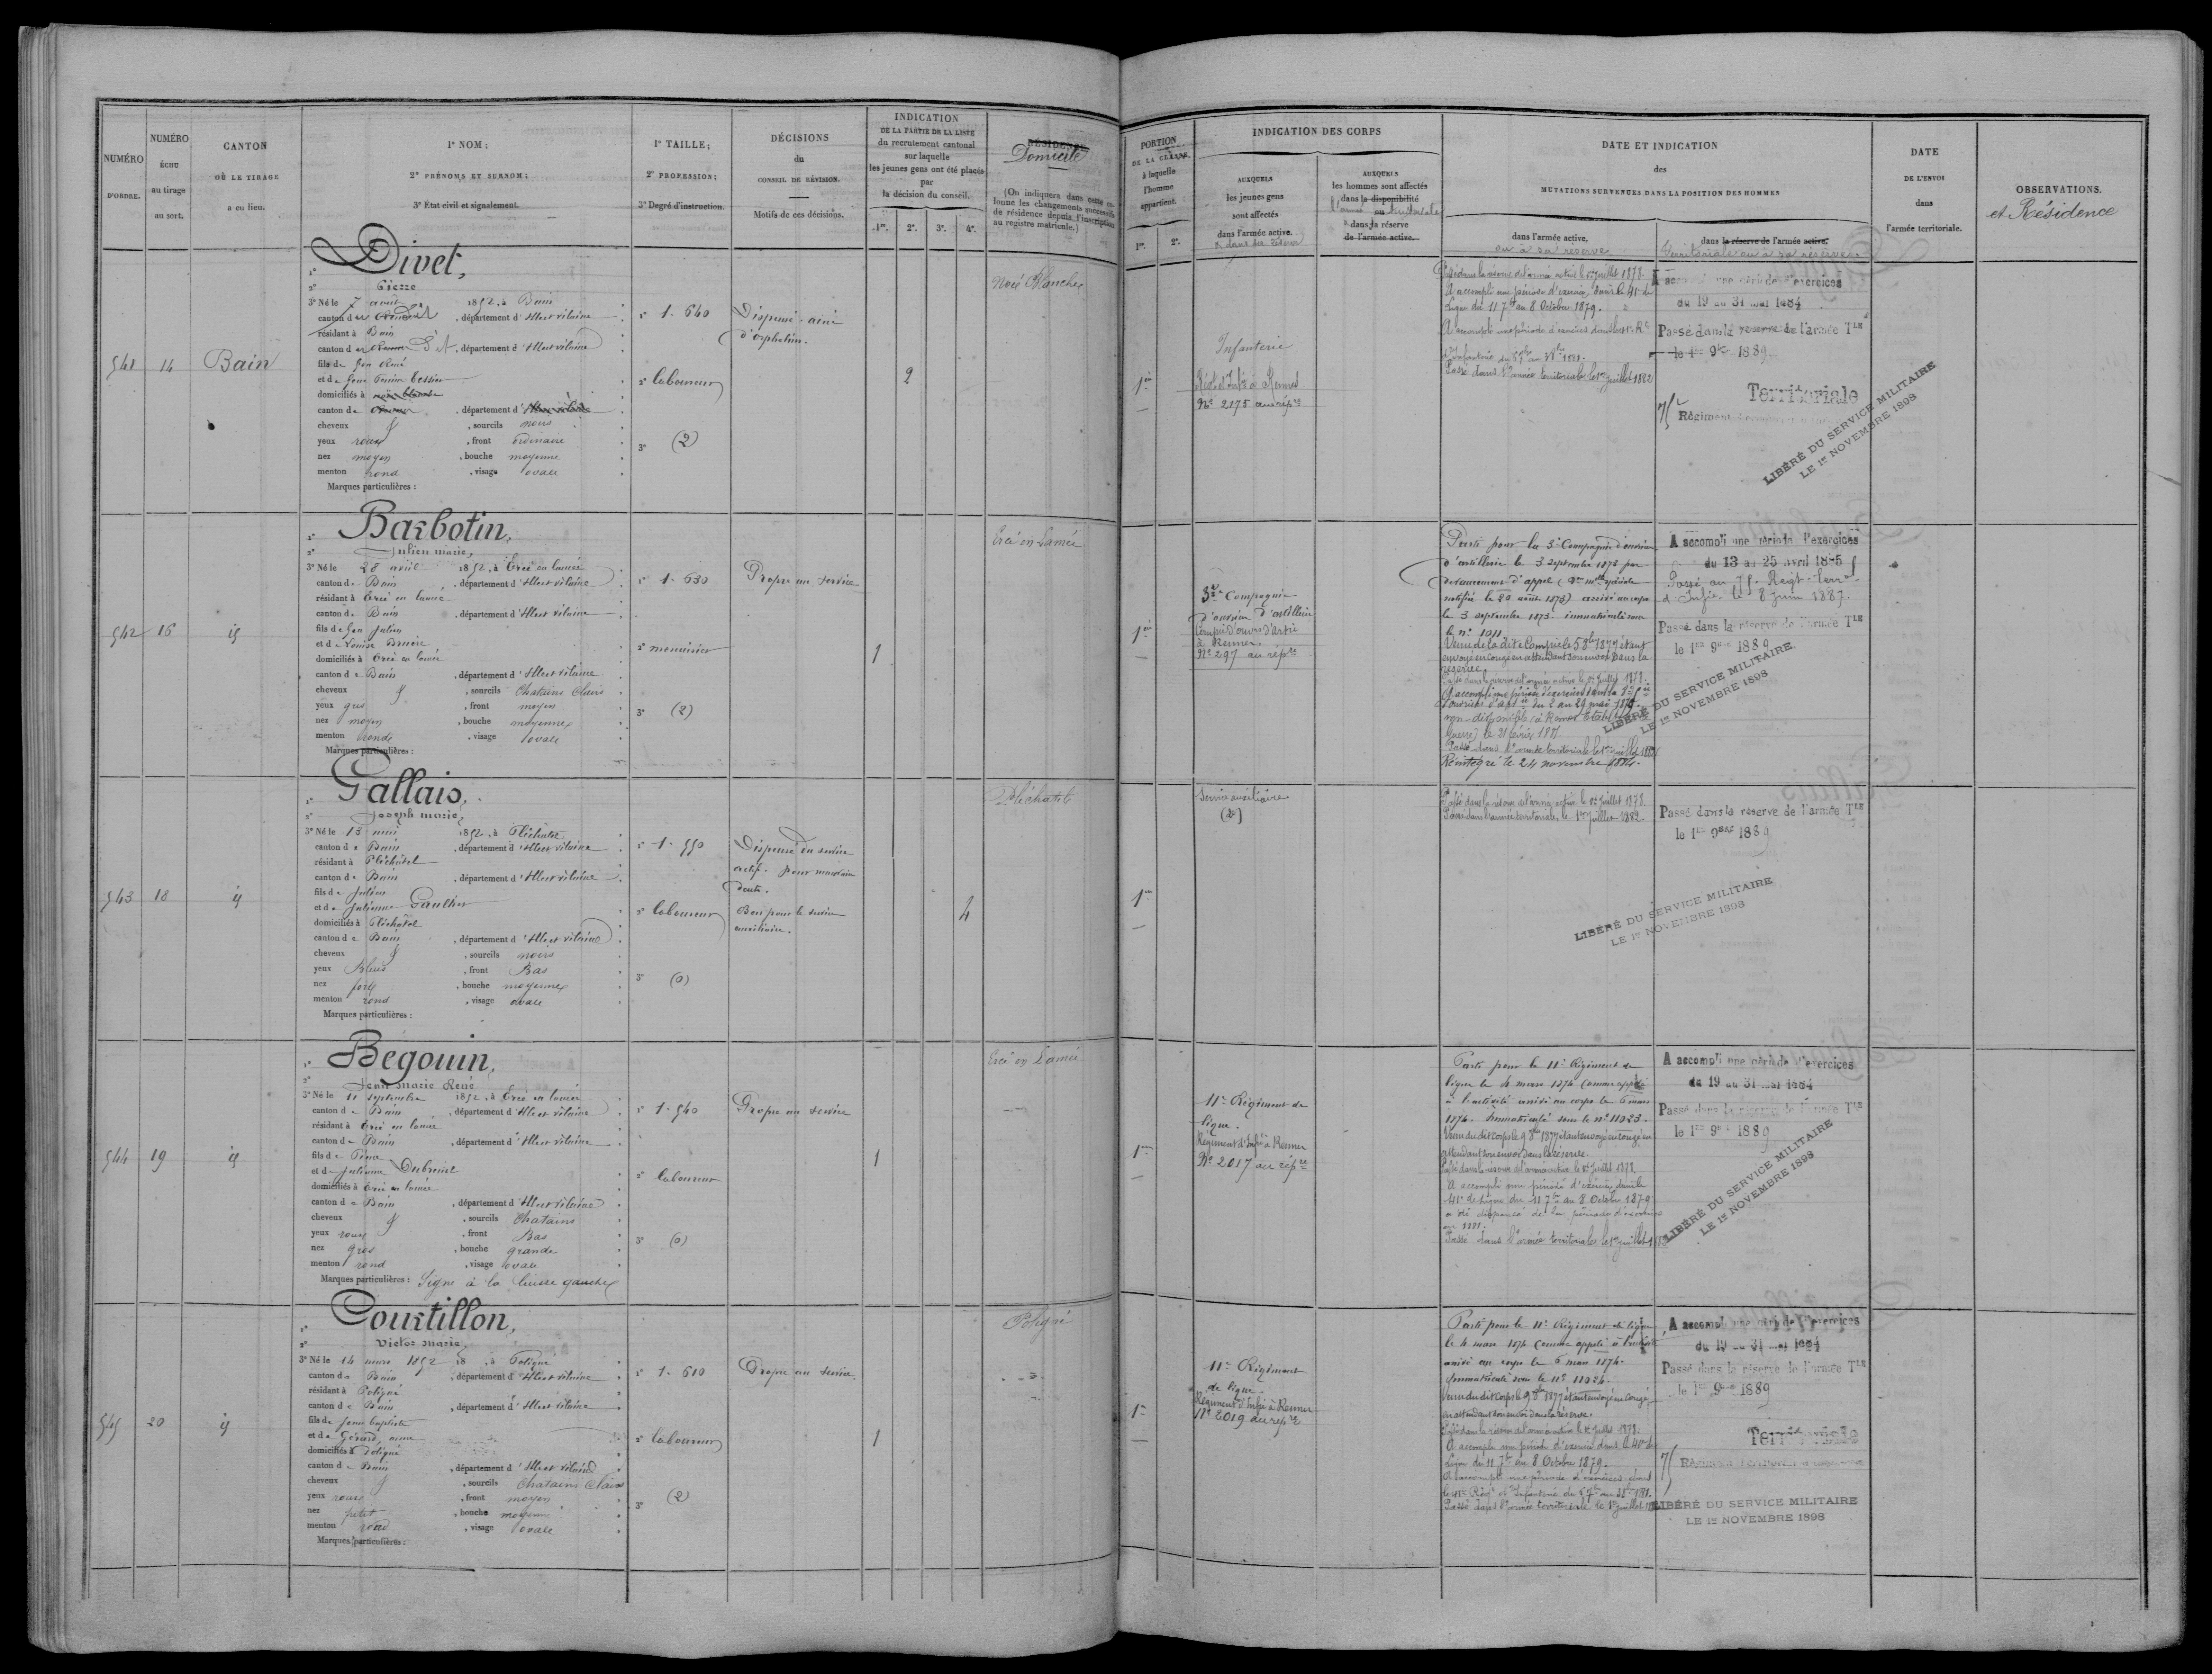 NUMÉRO
D'ORDRE.
NUMÉRO
ÉCHU
au tirage
au sort.
CANTON
OÙ LE TIRAGE
a eu lieu.
1° NOM;
2° PRÉNOMS ET SURNOM;
3° État civil et signalement.
1° TAILLE;
2° PROFESSION;
3° Degré d'instruction.
DÉCISIONS
du
CONSEIL DE RÉVISION.
Motifs de ces décisions.
INDICATION
DE LA PARTIE DE LA LISTE
du recrutement cantonal
sur laquelle
les jeunes gens ont été placés
par
la décision du conseil.
1re. 2e. 3e. 4e.
RÉSIDENCE
Domicile
(On indiquera dans cette colonne les changements successifs
de résidence depuis l'inscription
au registre matricule.)
PORTION
DE LA CLASSE
à laquelle
l'homme
appartient.
1re. 2e.
INDICATION DES CORPS
AUXQUELS
les jeunes gens
sont affectés
dans l'armée active.
AUXQUELS
les hommes sont affectés
dans la disponibilité
ou
dans la réserve
de l'armée active.
DATE ET INDICATION
des
MUTATIONS SURVENUES DANS LA POSITION DES HOMMES
dans l'armée active,
ou à sa réserve
dans la réserve de l'armée active.
Territoriale ou à sa réserve
DATE
DE L'ENVOI
dans
l'armée territoriale.
OBSERVATIONS.
et Résidence
541
14
Bain
Divet,
Pierre
3° Né le 7 août 1852, à Bain
canton d , département d'Ille et vilaine
résidant à Bain
canton d , département d'Ille et vilaine
fils de feu
et de feue
domiciliés à
canton de , département d'Ille et vilaine
cheveux , sourcils noirs
yeux roux , front ordinaire
nez moyen , bouche moyenne
menton rond , visage ovale
Marques particulières :
1° 1. 640
2° laboureur
3° (2)
Dispensé. ainé
d'orphelins.
2
Noë Blanche
1re
Infanterie
Régt d'Infie à Rennes
No 2175 au répre
Passé dans la réserve de l'armée active le 1er juillet 1878.
A accompli une période d'exercices dans le 41e de
Ligne du 11 7bre au 8 Octobre 1879.
Passé dans l'armée territoriale le 1er juillet 1882
A accompli une période d'exercices
du 19 au 31 mai 1884
Passé dans la réserve de l'armée Tle
le 1er 9bre 1889.
75
Régiment
Territoriale
LIBÉRÉ DU SERVICE MILITAIRE
LE 1er NOVEMBRE 1898
542
16
id
Barbotin,
Julien marie,
3° Né le 28 avril 1852, à Ercé en lamée
canton de Bain , département d'Ille et vilaine
résidant à Ercé en lamée
canton de Bain , département d'Ille et vilaine
fils de feu Julien
et de Louise Bruère
domiciliés à Ercé en lamée
canton de Bain , département d'Ille et vilaine
cheveux , sourcils Chatains Clairs
yeux gris , front moyen
nez moyen , bouche moyenne
menton ronde , visage ovale
Marques particulières :
1° 1. 630
2° menuisier
3° (2)
Propre au service
1
Ercé en Lamée
1re
3e Compagnie
d'ouvriers d'artillerie
Compie d'ouvrs d'artie
à Rennes.
No 297 au répre
Parti pour la 3e Compagnie d'ouvriers
d'artillerie le 3 septembre 1873 par
devancement d'appel
notifié le 20 août 1873) arrivé au corps
le 3 septembre 1873. immatriculé sous
le no 1011.
Venu de la dite Compie le 5 8bre 1877 étant
envoyé en congé en attendant son envoi dans la
réserve.
Passé dans la réserve de l'armée active le 1er Juillet 1878.
A accompli une période d'exercices dans la
d'ouvriers d'artie du 2 au 29 mai 1879.
Passé dans l'armée territoriale le 1er juillet 1882
Réintégré le 24 novembre 1884.
A accompli une période d'exercices
du 13 au 25 avril 1885
Passé au 75e Regt. Terral
d'Infie. le 8 Juin 1887.
Passé dans la réserve de l'armée Tle
le 1er 9bre 1889
LIBÉRÉ DU SERVICE MILITAIRE
LE 1er NOVEMBRE 1898
543
18
id
Gallais,
Joseph marie,
3° Né le 13 mai 1852, à Pléchatel
canton de Bain , département d'Ille et vilaine
résidant à Pléchatel
canton de Bain , département d'Ille et vilaine
fils de Julien
et de Julienne Gaultier
domiciliés à Pléchatel
canton de Bain , département d'Ille et vilaine
cheveux , sourcils noirs
yeux Bleus , front Bas
nez fort , bouche moyenne
menton rond , visage ovale
Marques particulières :
1° 1. 550
2° laboureur
3° (0)
Dispensé du service
actif. pour mauvaise
denture.
Bon pour le service
auxiliaire.
4
Pléchatel
1re
Service auxiliaire
Passé dans la réserve de l'armée active le 1er Juillet 1878.
Passé dans l'armée territoriale, le 1er Juillet 1882.
Passé dans la réserve de l'armée Tle
le 1er 9bre 1889
LIBÉRÉ DU SERVICE MILITAIRE
LE 1er NOVEMBRE 1898
544
19
id
Bégouin,
Jean Marie René
3° Né le 11 septembre 1852, à Ercé en lamée
canton de Bain , département d'Ille et vilaine
résidant à Ercé en lamée
canton de Bain , département d'Ille et vilaine
fils de
et de Julienne
domiciliés à Ercé en lamée
canton de Bain , département d'Ille et vilaine
cheveux , sourcils Chatains
yeux roux , front Bas
nez gros , bouche grande
menton rond , visage ovale
Marques particulières : Signe à la cuisse gauche
1° 1. 540
2° laboureur
3° (0)
Propre au service
1
Ercé en Lamée
1re
11e Régiment de
ligne.
Régiment d'Infie à Rennes
No 2017 au répre
Parti pour le 11e Régiment de
ligne le 4 mars 1874 comme appelé
à l'activité arrivé au corps le 6 mars
1874. Immatriculé sous le no 11023.
Venu du dit corps le 9 8bre 1877 étant envoyé en congé en
attendant son envoi dans la réserve.
Passé dans la réserve de l'armée active le 1er Juillet 1878.
A accompli une période d'exercices dans le
41e de Ligne du 11 7bre au 8 Octobre 1879
a été dispensé de la période d'exercices
en 1881.
Passé dans l'armée territoriale le 1er juillet 1882
A accompli une période d'exercices
du 19 au 31 mai 1884
Passé dans la réserve de l'armée Tle
le 1er 9bre 1889
LIBÉRÉ DU SERVICE MILITAIRE
LE 1er NOVEMBRE 1898
545
20
id
Courtillon,
Victor Marie,
3° Né le 14 mars 1852 18 , à Poligné
canton de Bain , département d'Ille et vilaine
résidant à Poligné
canton de Bain , département d'Ille et vilaine
fils de Jean baptiste
et de Gérard, anne
domiciliés à Poligné
canton de Bain , département d'Ille et vilaine
cheveux , sourcils Chatains Clairs
yeux roux , front moyen
nez petit , bouche moyenne
menton rond , visage ovale
Marques particulières :
1° 1. 610
2° laboureur
3° (2)
Propre au service.
1
Poligné
1re
11e Régiment
de ligne.
Régiment d'Infie à Rennes
No 2019 au répre
Parti pour le 11e Régiment de ligne
le 4 mars 1874 comme appelé à l'activité
arrivé au corps le 6 mars 1874.
Immatriculé sous le no 11024.
Venu du dit corps le 9 8bre 1877 étant envoyé en congé
en attendant son envoi dans la réserve.
Passé dans la réserve de l'armée active le 1er Juillet 1878.
A accompli une période d'exercices dans le 41e de
Ligne du 11 7bre au 8 Octobre 1879.
A accompli une période d'exercices dans
Passé dans l'armée territoriale le 1er juillet
A accompli une période d'exercices
du 19 au 31 mai 1884
Passé dans la réserve de l'armée Tle
le 1er 9bre 1889
75
Régiment
Territoriale
LIBÉRÉ DU SERVICE MILITAIRE
LE 1er NOVEMBRE 1898